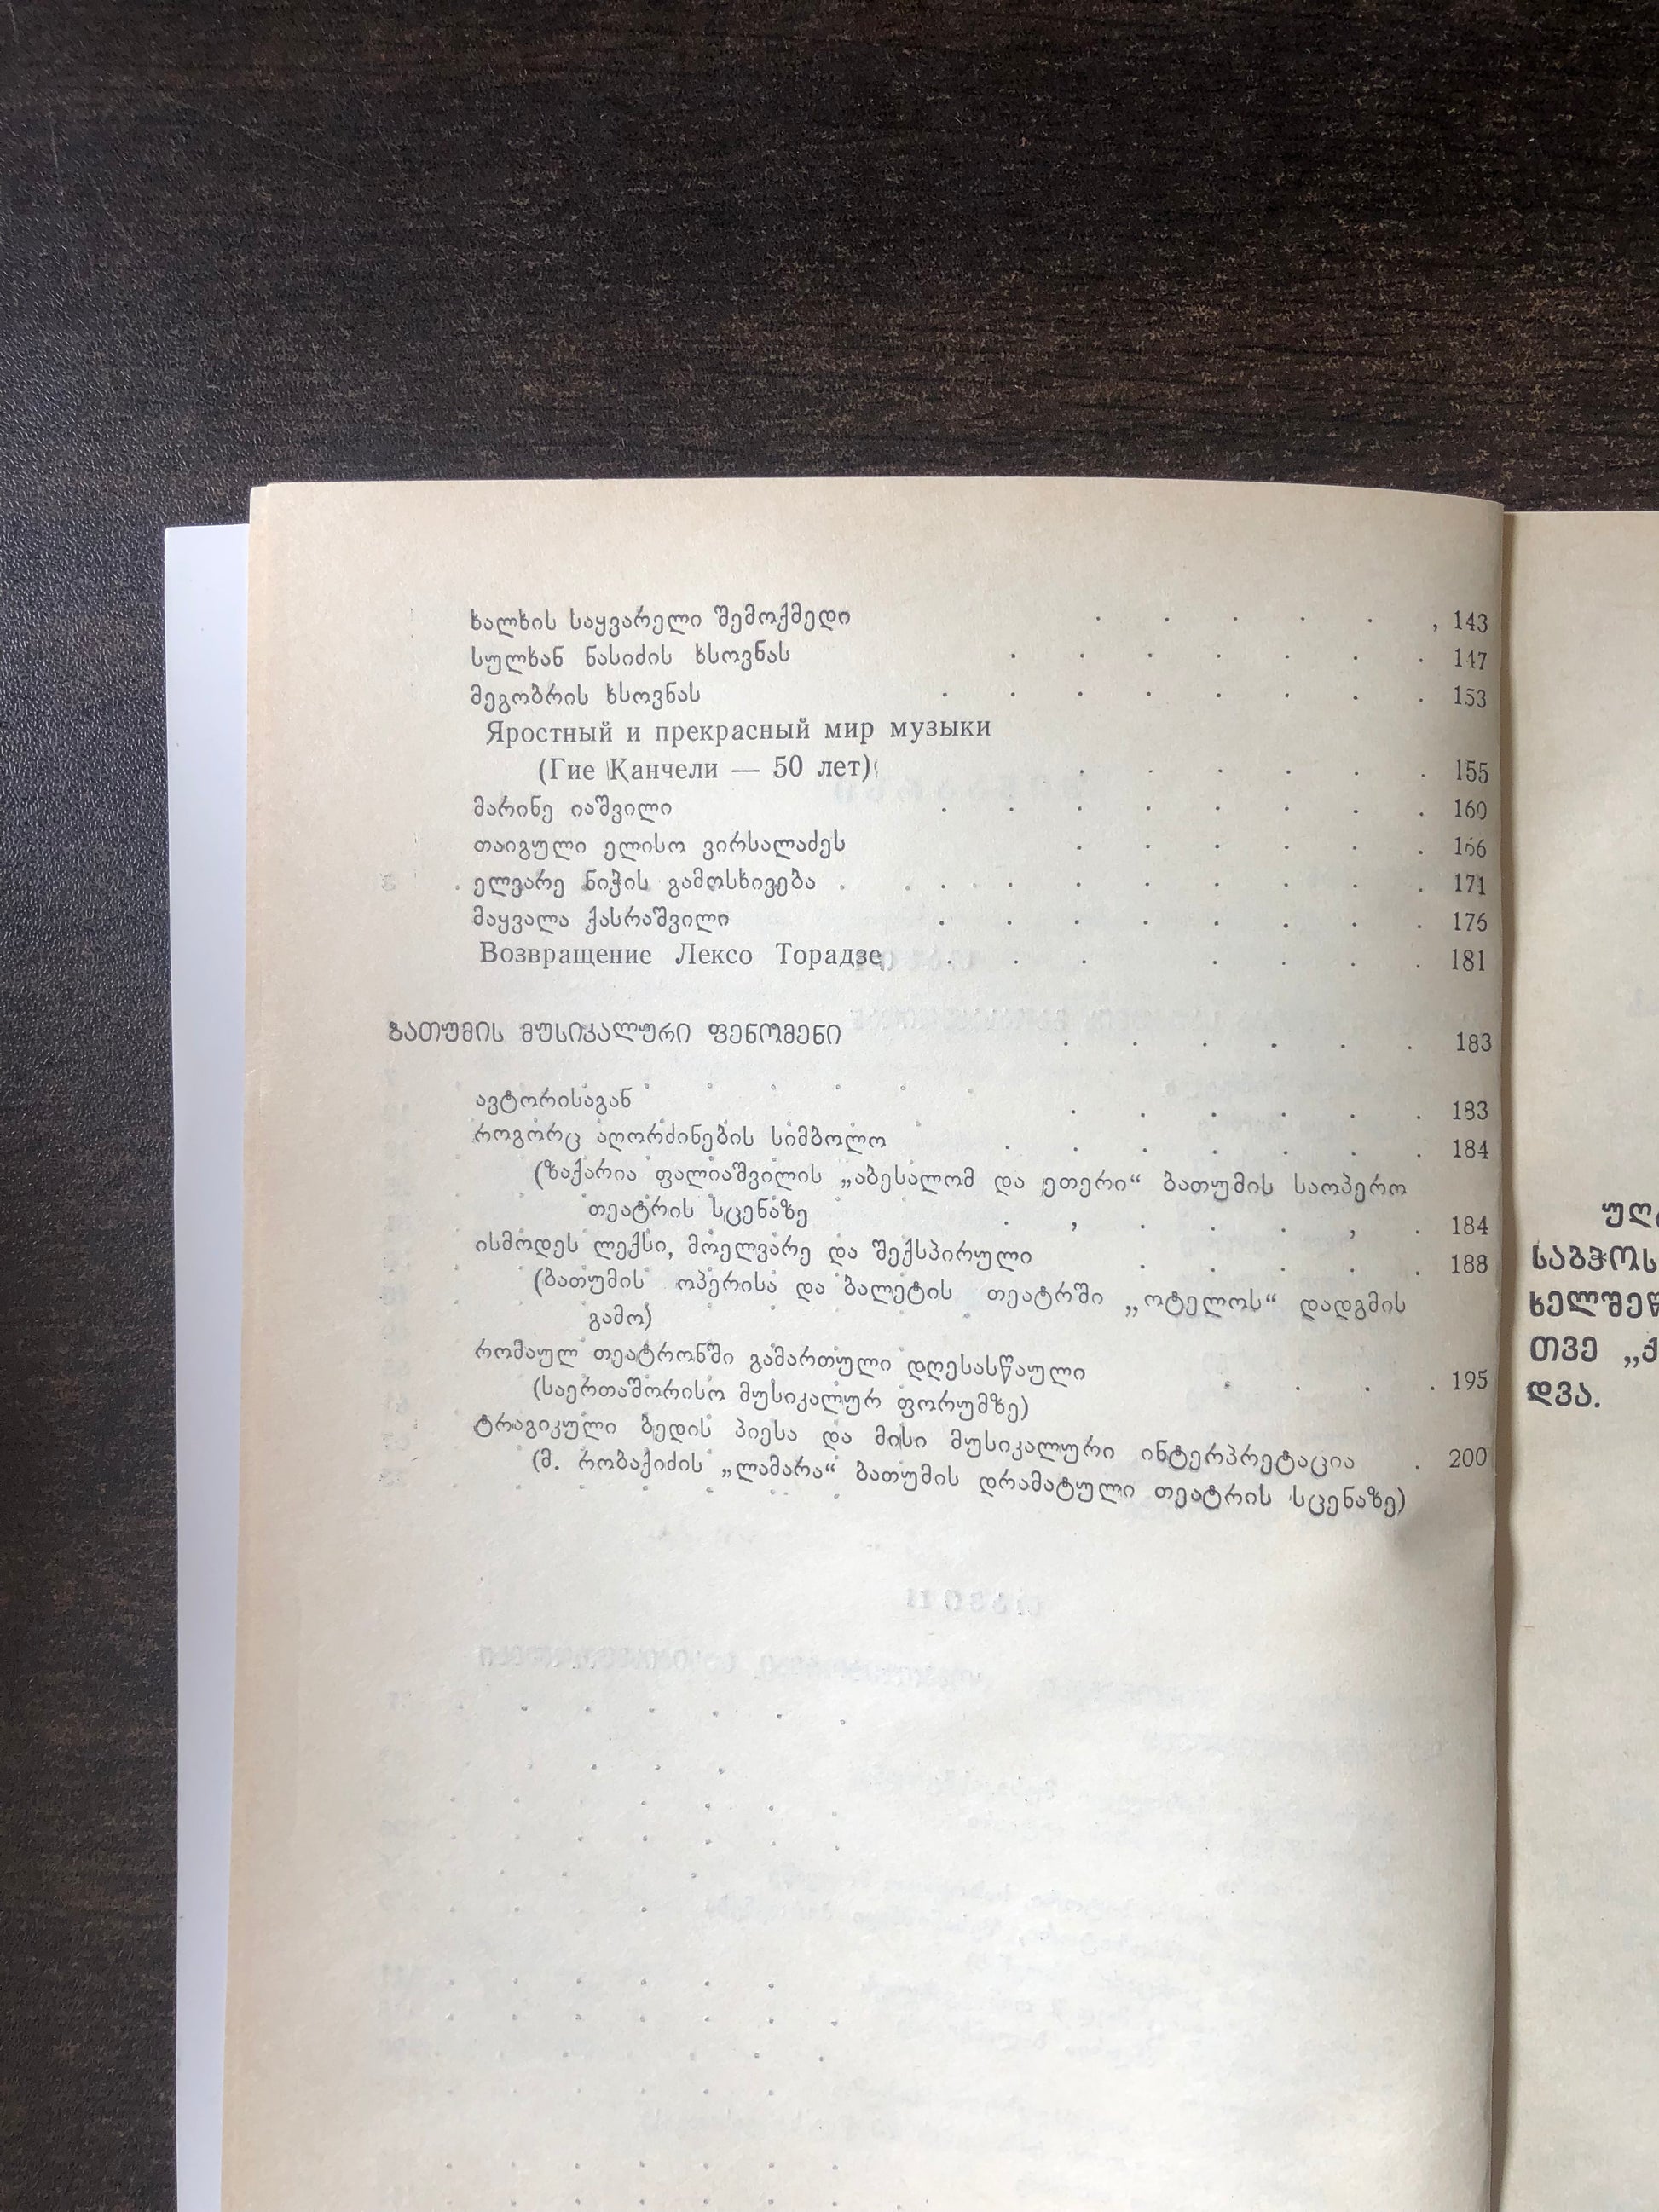 ხალხის საყვარელი შემოქმედი . . . . . , 143
სულხან ნასიძის ხსოვნას . . . . . . . 147
მეგობრის ხსოვნას . . . . . . . . 153
Яростный и прекрасный мир музыки
(Гие Канчели — 50 лет) . . . . . . 155
მარინე იაშვილი . . . . . . . . 160
თაიგული ელისო ვირსალაძეს . . . . . . 166
ელვარე ნიჭის გამოსხივება . . . . . . . . . . 171
მაყვალა ქასრაშვილი . . . . . . . . 176
Возвращение Лексо Торадзе . . . . . . . 181
ᲑᲐᲗᲣᲛᲘᲡ ᲛᲣᲡᲘᲙᲐᲚᲣᲠᲘ ᲤᲔᲜᲝᲛᲔᲜᲘ . . . . . . 183
ავტორისაგან . . . . . . 183
როგორც აღორძინების სიმბოლო . . . . . . . 184
(ზაქარია ფალიაშვილის „აბესალომ და ეთერი“ ბათუმის საოპერო
თეატრის სცენაზე . , . . . , . 184
ისმოდეს ლექსი, მოელვარე და შექსპირული . . . . . 188
(ბათუმის ოპერისა და ბალეტის თეატრში „ოტელოს“ დადგმის
გამო)
რომაულ თეატრონში გამართული დღესასწაული . . . . 195
(საერთაშორისო მუსიკალურ ფორუმზე)
ტრაგიკული ბედის პიესა და მისი მუსიკალური ინტერპრეტაცია . 200
(მ. რობაქიძის „ლამარა“ ბათუმის დრამატული თეატრის სცენაზე)
ᲡᲐᲑᲭᲝᲡ
ᲗᲕᲔ
ᲓᲕᲐ.